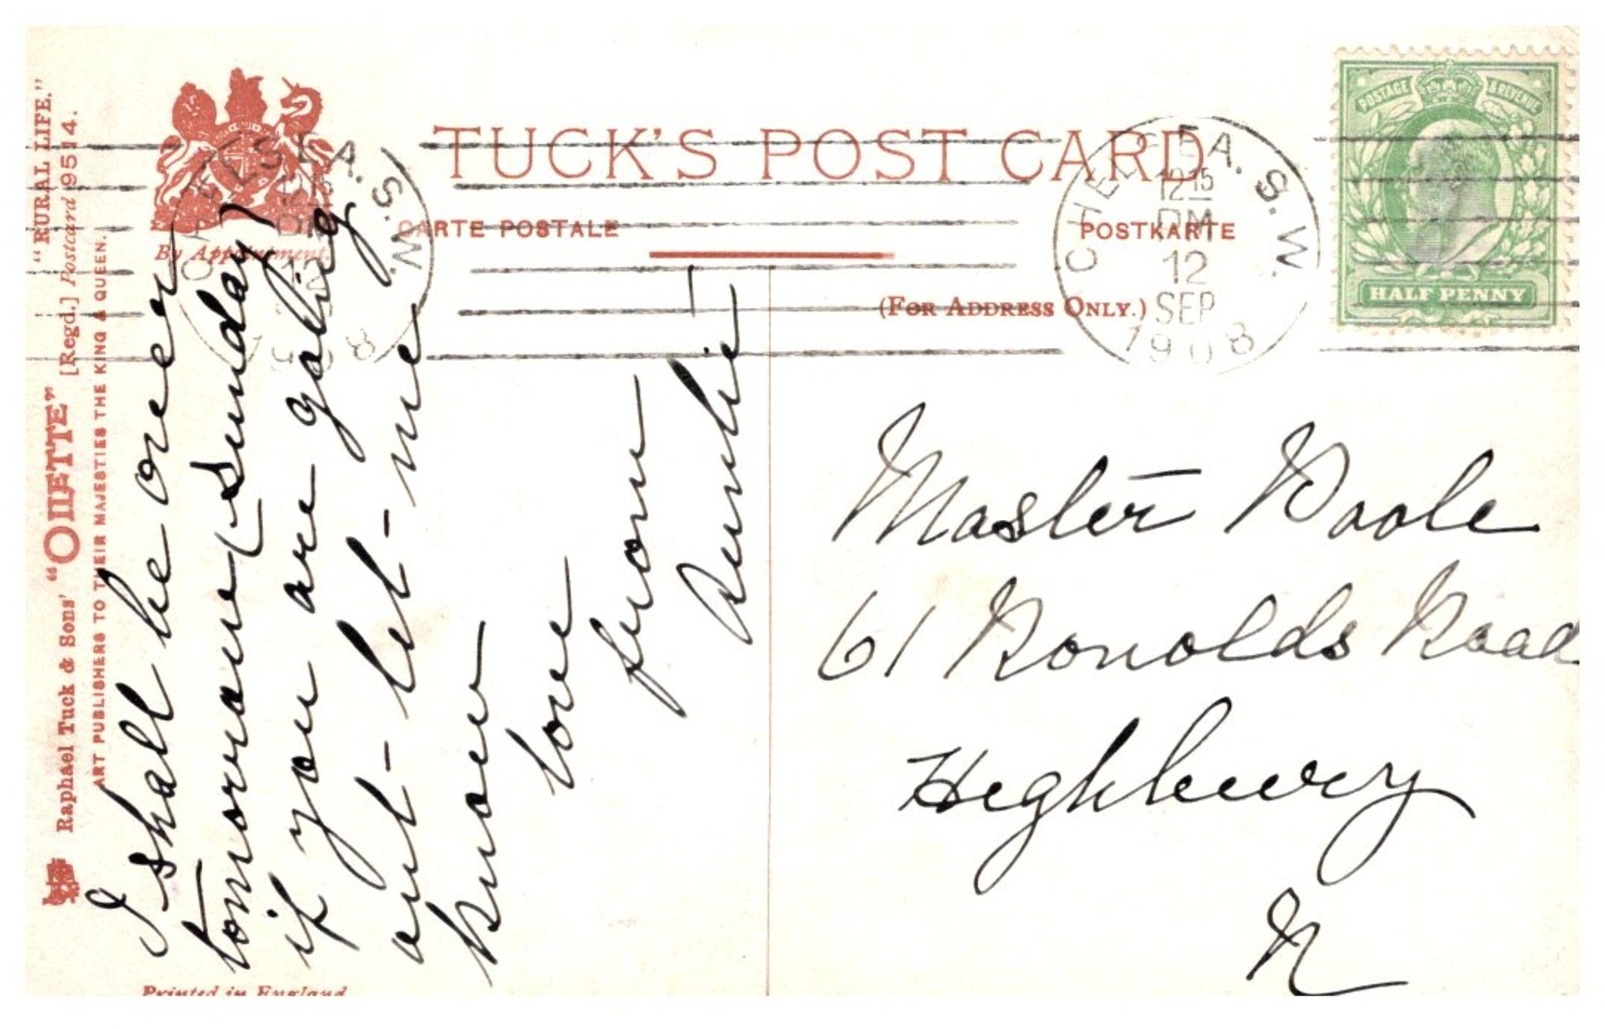 "RURAL LIFE."
[Regd.] Postcard 9514.
Raphael Tuck & Sons' "OILETTE"
ART PUBLISHERS TO THEIR MAJESTIES THE KING & QUEEN.
By Appointment.
TUCK'S POST CARD
CARTE POSTALE
POSTKARTE
(FOR ADDRESS ONLY.)
CHELSEA. S.W.
12 15
PM
12
SEP
1908
CHELSEA. S.W.
12 15
PM
12
1908
POSTAGE & REVENUE
HALF PENNY
I shall be over
tomorrow (Sunday)
if you are going
out let me
know
love
from
Auntie
Master Poole
61 Ronolds Road
Highbury
N
Printed in England